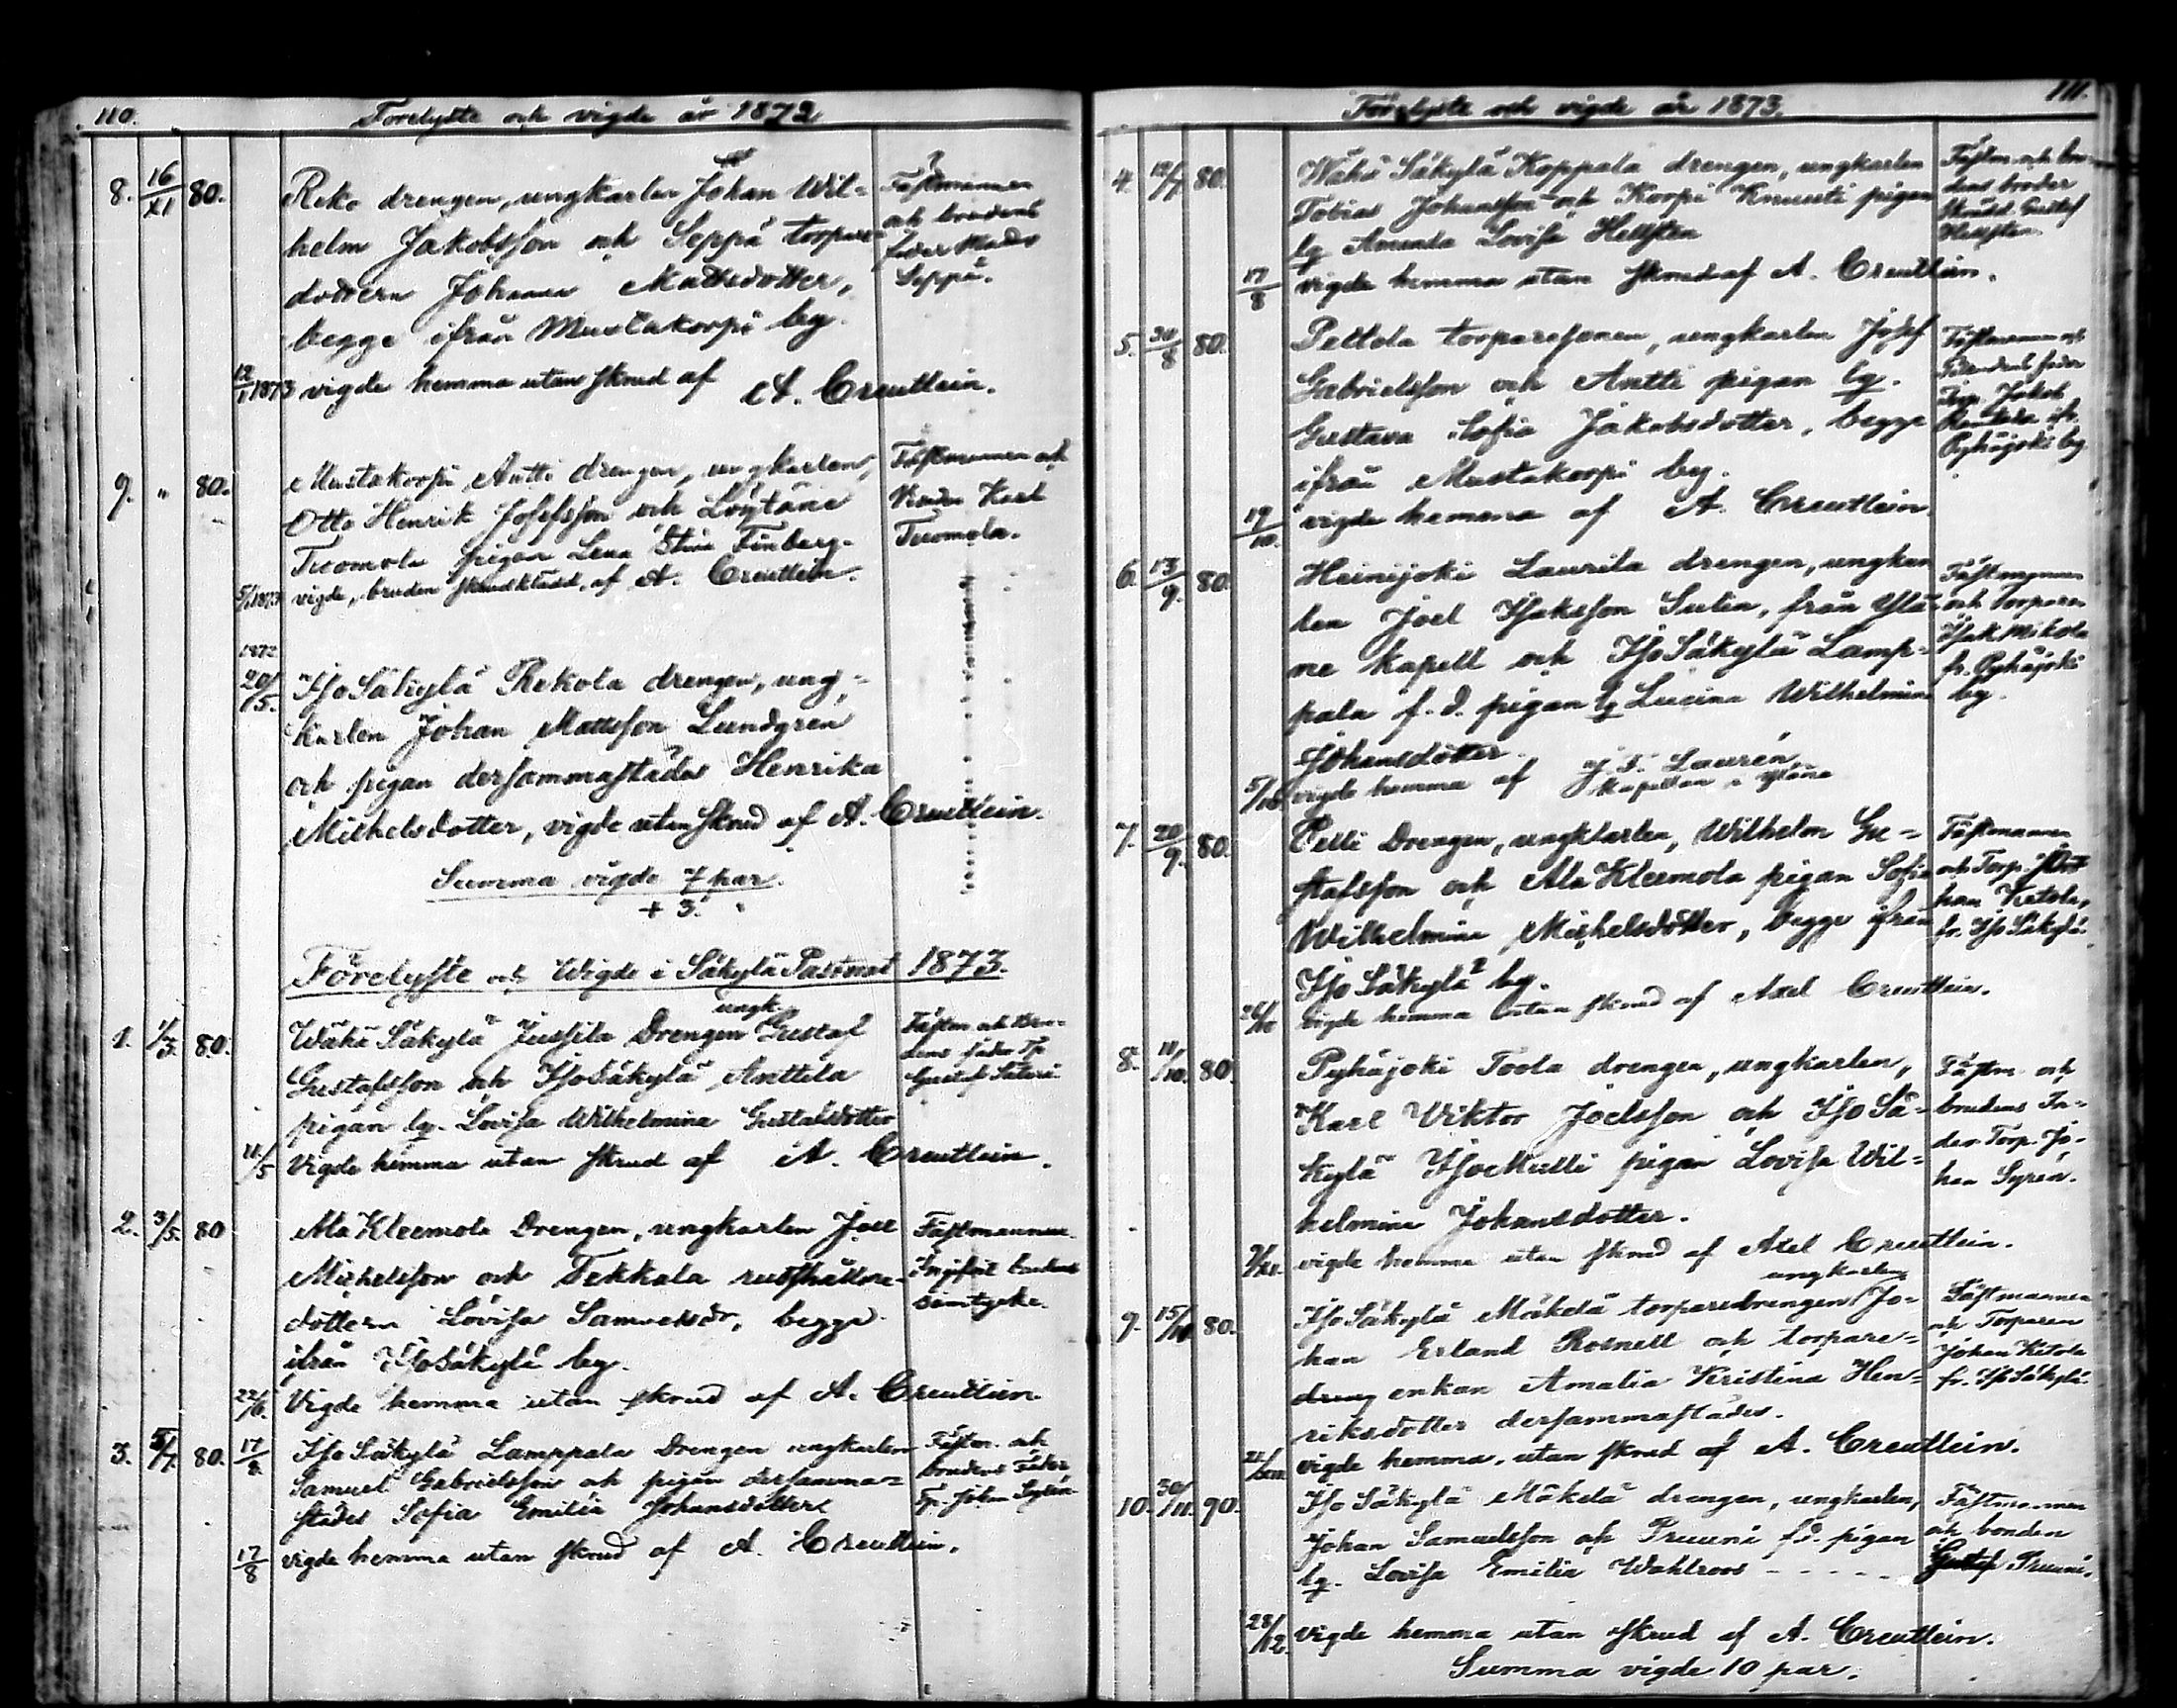 110.
Forelyste och vigde år 1872
8. 16/XI 80. Reko drengen, ungkarlen Johan Wil=
helm Jakobsson och Seppä torpare
dottern Johanna Mattsdotter,
begge ifrån Mustakorpi by.
Fästmannen
och brudens
fader Mads
Seppä.
12/1 1873 vigde hemma utan skrud af A. Creutlein.
9. " 80. Mustakorpi Antti drengen, ungkarlen,
Otto Henrik Josefsson och Löytäne
Tuomola pigan Lena Stina Finberg.
Fästmannen och
Karl
Tuomola.
5/1 1873 vigde, bruden skrudklädd, af A. Creutlein.
1872
20/5. Iso Säkylä Rekola drengen, ung=
karlen Johan Mattsson Lundgren
och pigan dersammastädes Henrika
Michelsdotter, vigde utan skrud af A. Creutlein.
Summa vigde 7 par.
+ 3. "
Förelyste och Wigde i Säkylä Pastorat 1873.
ungk.
1. 1/3. 80. Wähä Säkylä Jussila Drengen Gustaf
Gustafsson och Iso Säkylä Anttila
pigan lg. Lovisa Wilhelmina Gustafsdotter
Fästm. och bru=
dens fader Tp
Gustaf
11/5 Vigde hemma utan skrud af A. Creutlein.
2. 3/5. 80 Ala Kleemola Drengen, ungkarlen Joel
Michelsson och Tekkala rusthållare=
dottern Lovisa Samuelsdr, begge
ifrån Iso Säkylä by.
Fästmannen.
brudens
samtycke.
22/6. Vigde hemma utan skrud af A. Creutlein.
3. 5/7. 80. 17/8. Iso Säkylä Lamppala Drengen ungkarlen
Samuel Gabrielsson och pigan dersamma=
städes Sofia Emilia Johansdotter
Fästm. och
brudens Fader,
Tp. Johan
17/8 vigde hemma utan skrud af A. Creutlein.
111.
Förelyste och vigde år 1873.
4. 12/7 80. Wähä Säkylä Koppala drengen, ungkarlen
Tobias Johansson och Korpi Knuuti pigan
lg Amanda Lovisa Hellsten
Fästm. och bru=
dens broder
Gustaf
Hellsten.
17/8 vigde hemma utan skrud af A. Creutlein.
5. 30/8 80. Peltola torparesonen, ungkarlen Josef
Gabrielsson och Antti pigan lg.
Gustava Sofia Jakobsdotter, begge
ifrån Mustakorpi by.
Fästmannen och
Brudens fader
Torp. Jakob
ifr.
Pyhäjoki by
19/10. vigde hemma af A. Creutlein.
6. 13/9. 80. Heinijoki Laurila drengen, ungkar
len Joel Isaksson Sulin, från Ylä=
ne kapell och Iso Säkylä Lamp=
pala f.d. pigan lg Lucina Wilhelmina
Johansdotter.
Fästmannen
och torparen
Isak Mikola
fr. Pyhäjoki
by.
5/10 vigde hemma af J. F. Laurén,
Kapellan i Yläne
7. 20/9. 80. Pelli Drengen, ungkarlen, Wilhelm Gu=
stafsson och Ala Kleemola pigan Sofia
Wilhelmina Michelsdotter, begge ifrån
Iso Säkylä by.
Fästmannen
och Torp. Jo
han Ketola,
fr. Iso Säkylä.
26/10 vigde hemma utan skrud af Axel Creutlein.
8. 11/10. 80. Pyhäjoki Toola drengen, ungkarlen,
Karl Viktor Joelsson och Iso Sä=
kylä Iso Mulli pigan Lovisa Wil=
helmina Johansdotter.
Fästm. och
brudens Fa=
der Torp. Jo=
han Syren.
vigde hemma utan skrud af Axel Creutlein.
ungkarlen
9. 15/11 80. Iso Säkylä Mäkelä torparedrengen Jo=
han Erland Rosnell och torpare=
dreng enkan Amalia Kristina Hen=
riksdotter dersammastädes.
Fästmannen
och Torparen
Johan Ketola
fr. Iso Säkylä.
21/XII vigde hemma, utan skrud af A. Creutlein.
10. 30/11. 90. Iso Säkylä Mäkelä drengen, ungkarlen,
Johan Samuelsson och Pruuni f.d. pigan
lg. Lovisa Emilia Wahlroos - - - - -
Fästmannen
och bonden
Gustaf Pruuni.
28/12. vigde hemma utan skrud af A. Creutlein.
Summa vigde 10 par.